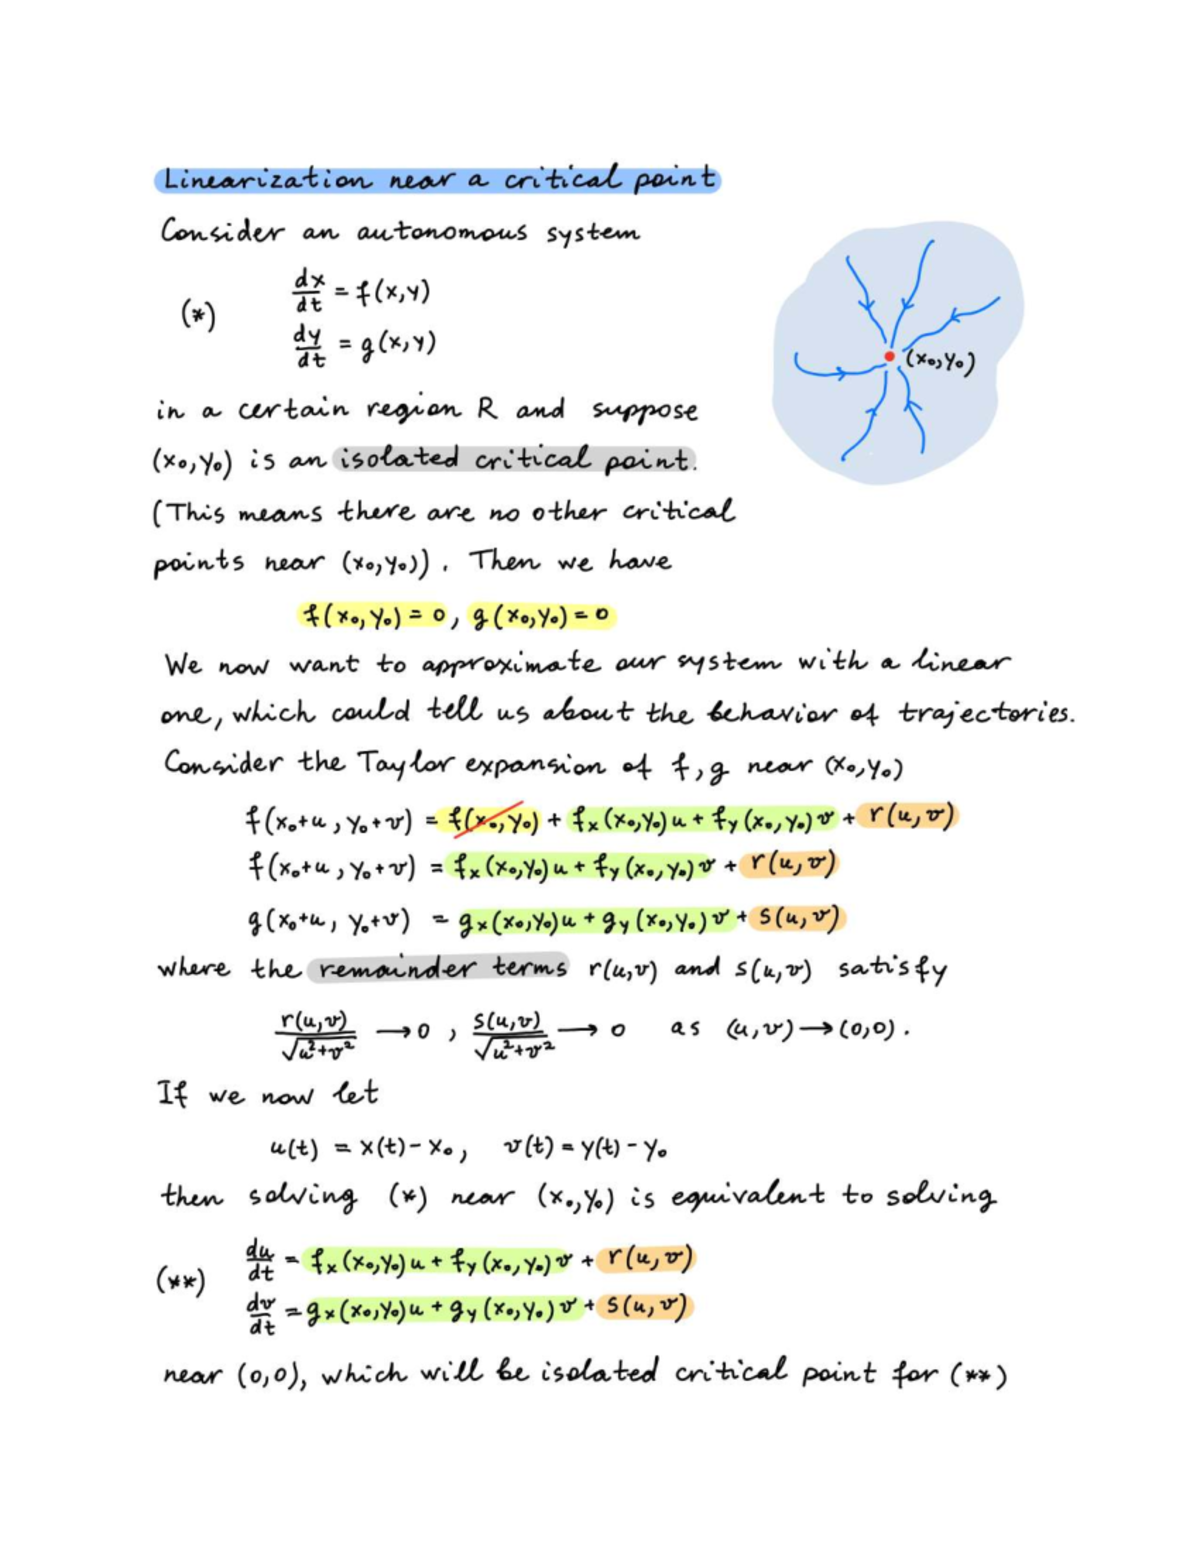 Linearization near a critical point
Consider an autonomous system
(*) dx/dt = f(x,y)
dy/dt = g(x,y)
(x₀,y₀)
in a certain region R and suppose
(x₀,y₀) is an isolated critical point.
(This means there are no other critical
points near (x₀,y₀)). Then we have
f(x₀,y₀) = 0, g(x₀,y₀) = 0
We now want to approximate our system with a linear
one, which could tell us about the behavior of trajectories.
Consider the Taylor expansion of f,g near (x₀,y₀)
f(x₀+u, y₀+v) = f(x₀,y₀) + fₓ(x₀,y₀)u + f_y(x₀,y₀)v + r(u,v)
f(x₀+u, y₀+v) = fₓ(x₀,y₀)u + f_y(x₀,y₀)v + r(u,v)
g(x₀+u, y₀+v) = gₓ(x₀,y₀)u + g_y(x₀,y₀)v + s(u,v)
where the remainder terms r(u,v) and s(u,v) satisfy
r(u,v)/√(u²+v²) → 0, s(u,v)/√(u²+v²) → 0 as (u,v) → (0,0).
If we now let
u(t) = x(t) - x₀, v(t) = y(t) - y₀
then solving (*) near (x₀,y₀) is equivalent to solving
(**) du/dt = fₓ(x₀,y₀)u + f_y(x₀,y₀)v + r(u,v)
dv/dt = gₓ(x₀,y₀)u + g_y(x₀,y₀)v + s(u,v)
near (0,0), which will be isolated critical point for (**)